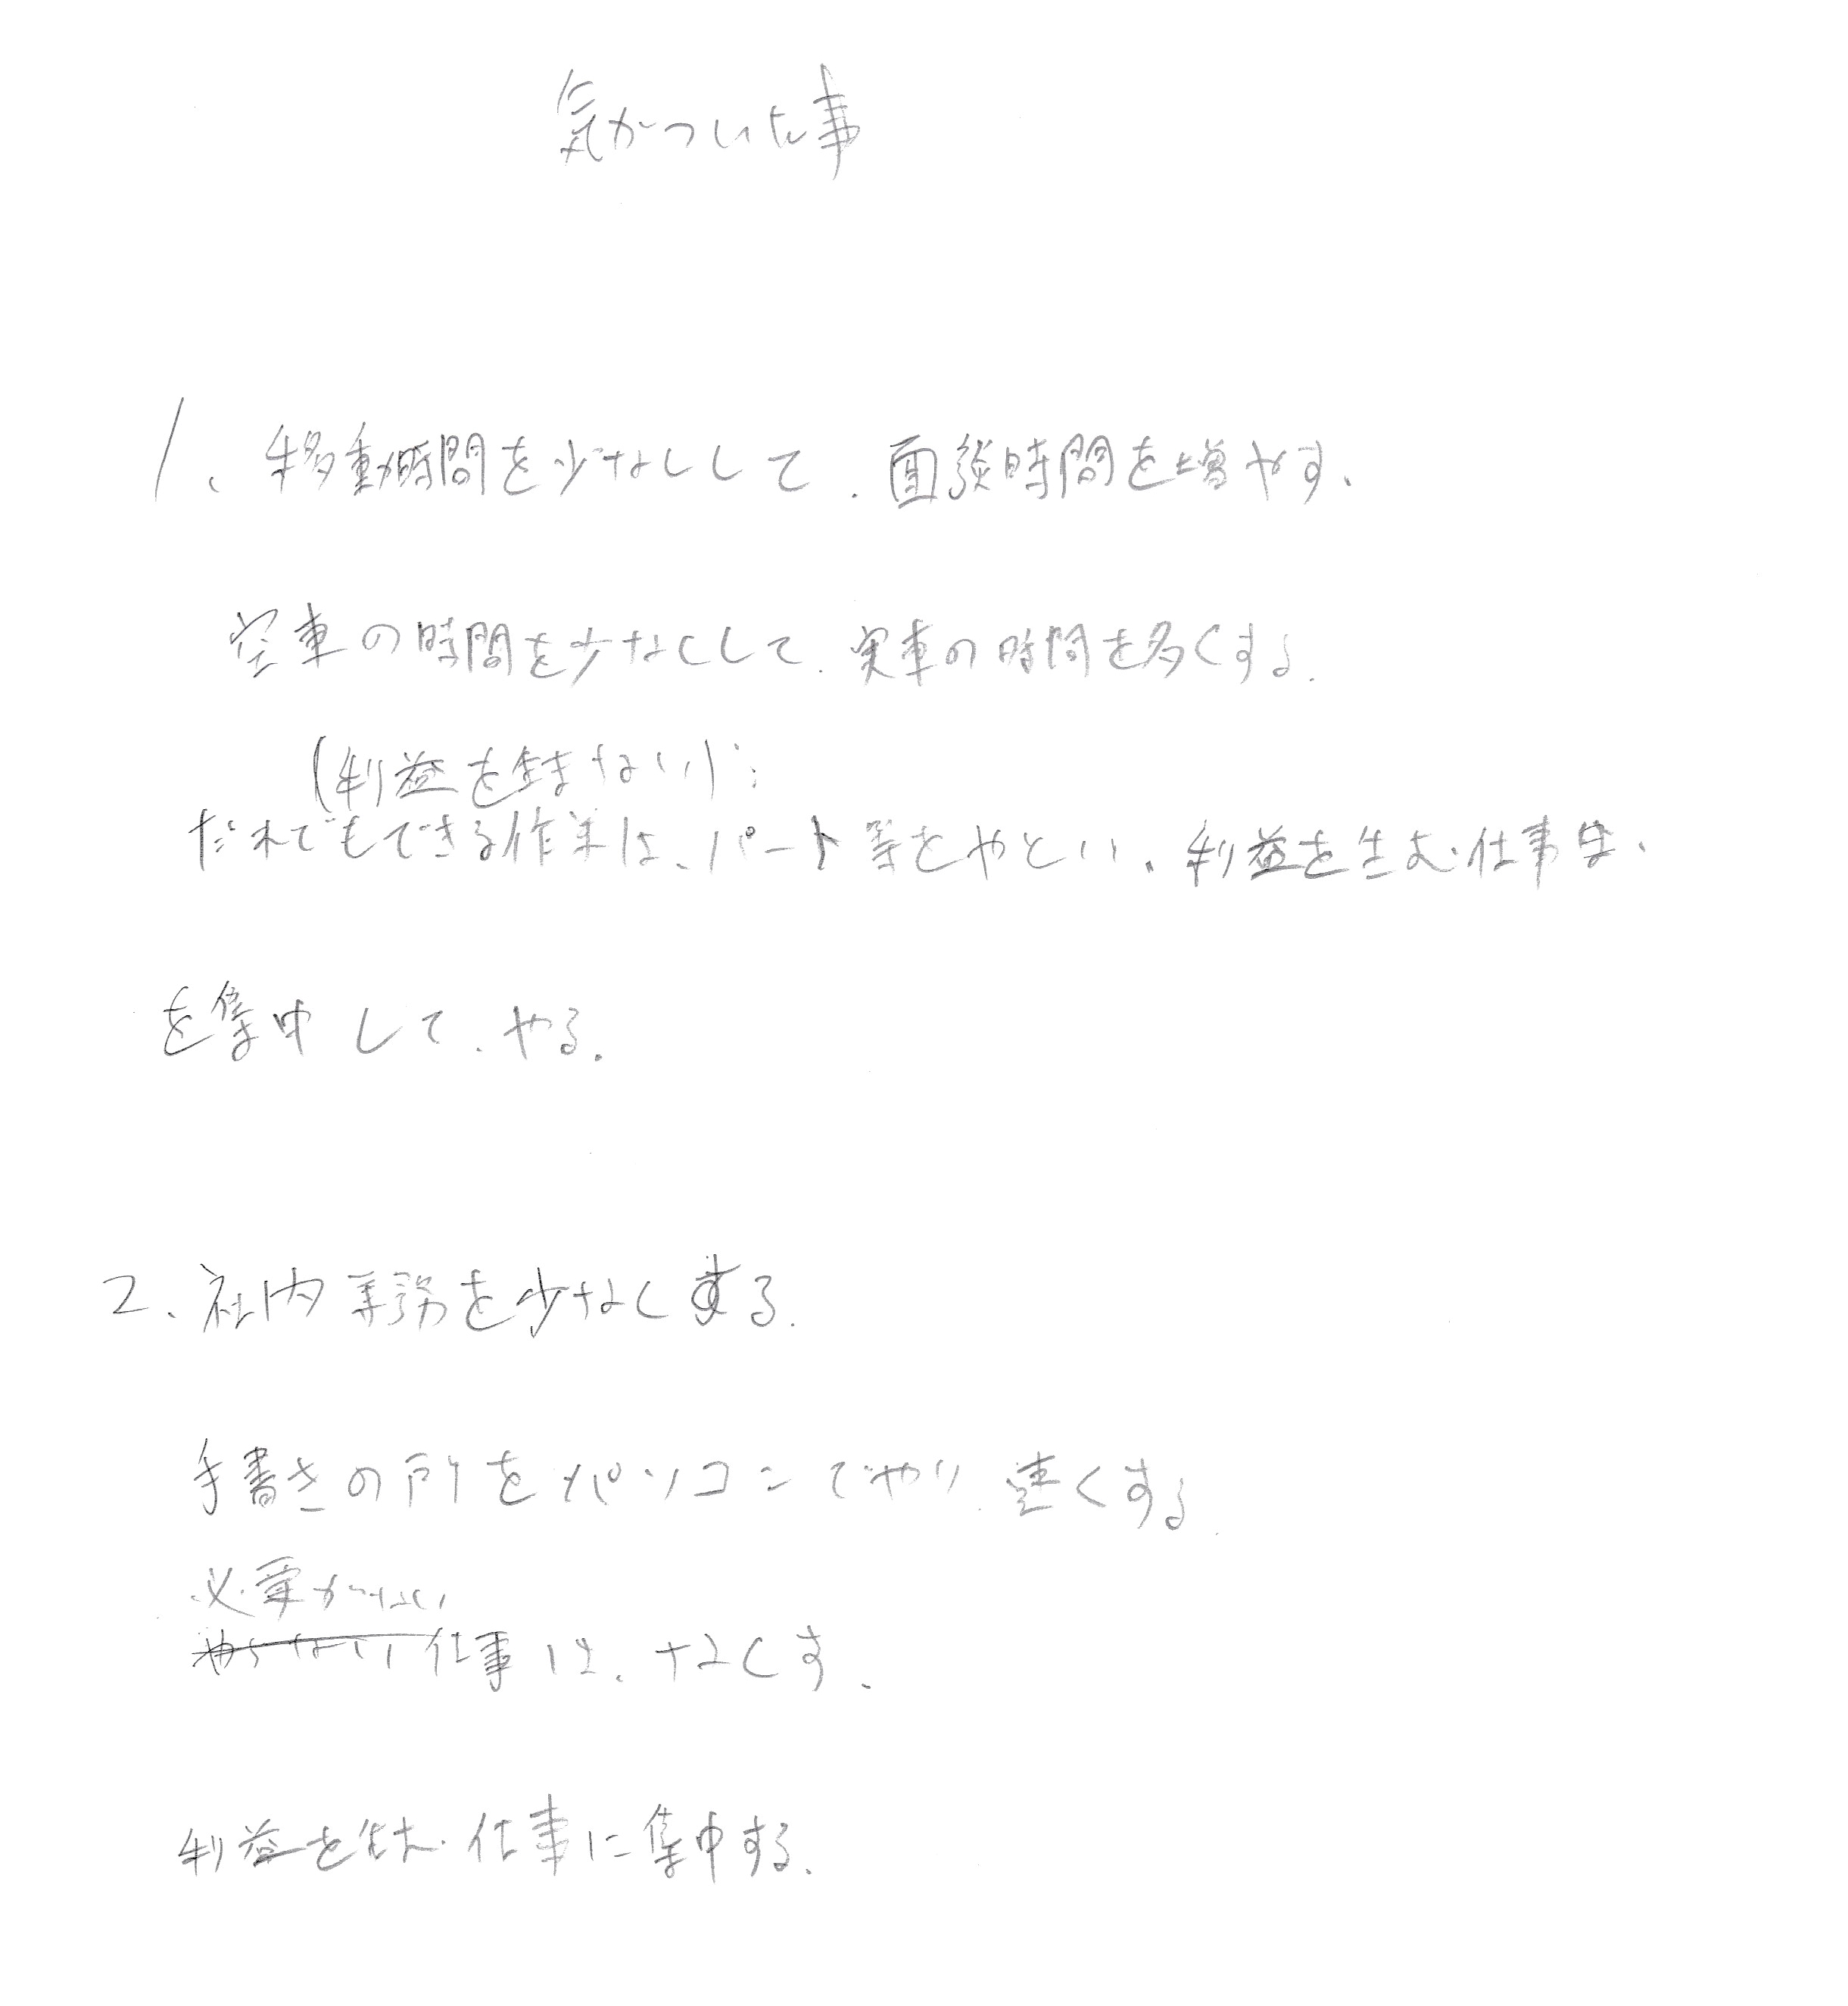 気がついた事
1、移動時間を少なくして、面談時間を増やす、
空車の時間を少なくして、実車の時間を多くする。
(利益を生まない)
だれでもできる作業は、パート等をやとい、利益を生む仕事は、
を集中して、やる。
2、社内業務を少なくする。
手書きの所をパソコンでやり、速くする。
必要がない
やらない仕事は、なくす、
利益を生む仕事に集中する。